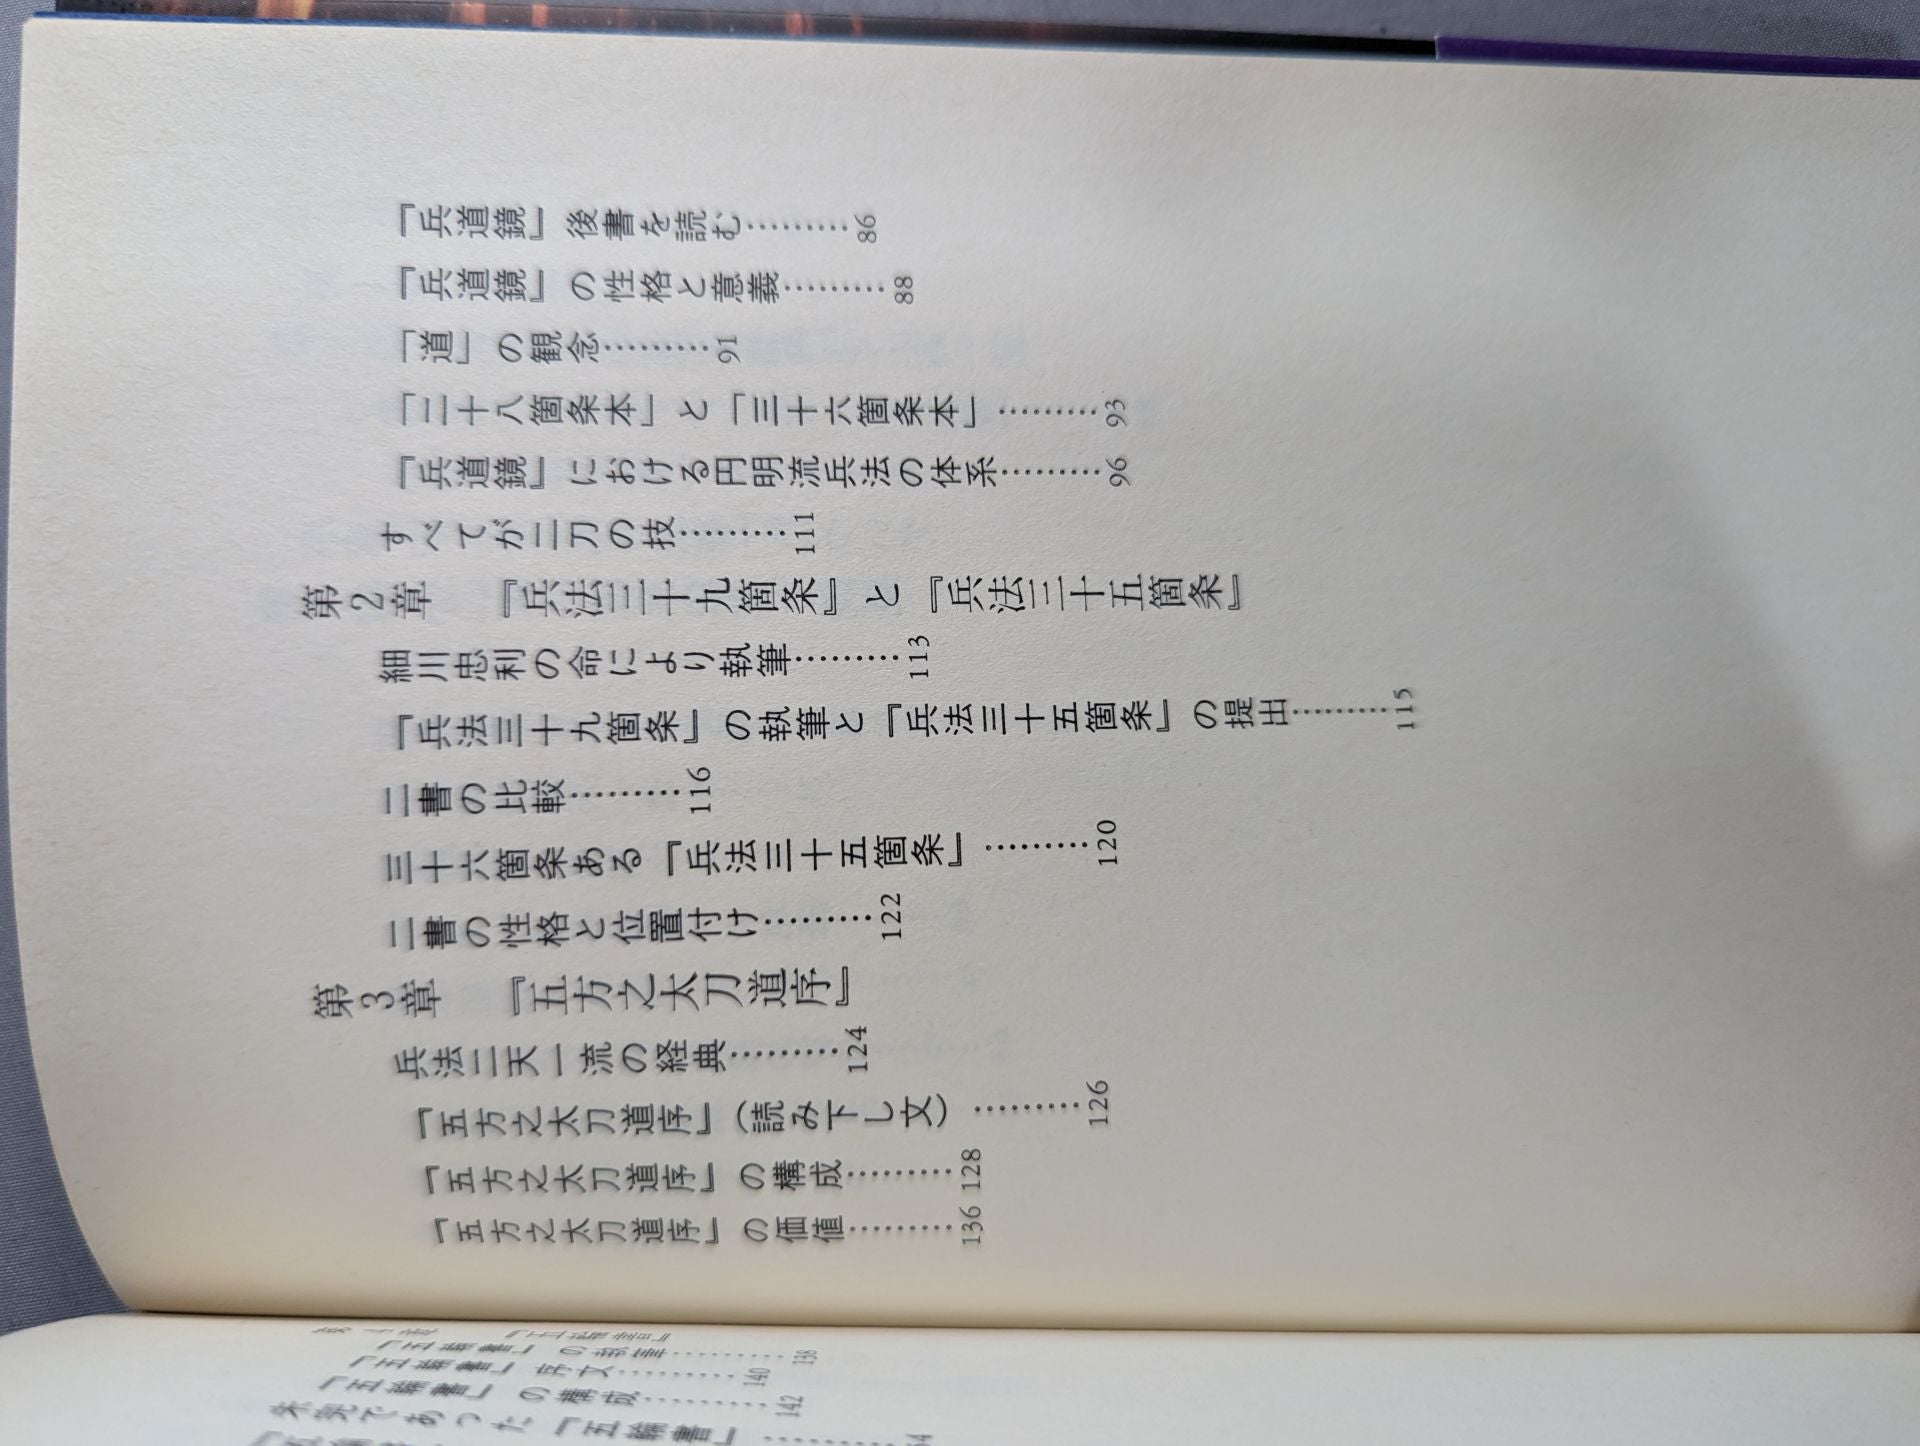 『兵道鏡』後書を読む………86
『兵道鏡』の性格と意義………88
「道」の観念………91
「二十八箇条本」と「三十六箇条本」………93
『兵道鏡』における円明流兵法の体系………96
すべてが二刀の技………111
第2章 『兵法三十九箇条』と『兵法三十五箇条』
細川忠利の命により執筆………113
『兵法三十九箇条』の執筆と『兵法三十五箇条』の提出………115
二書の比較………116
三十六箇条ある『兵法三十五箇条』………120
二書の性格と位置付け………122
第3章 『五方之太刀道序』
兵法二天一流の経典………124
『五方之太刀道序』（読み下し文）………126
『五方之太刀道序』の構成………128
『五方之太刀道序』の価値………136
『五輪書』
『五輪書』の執筆………138
『五輪書』序文………140
『五輪書』の構成………142
未完であった『五輪書』………